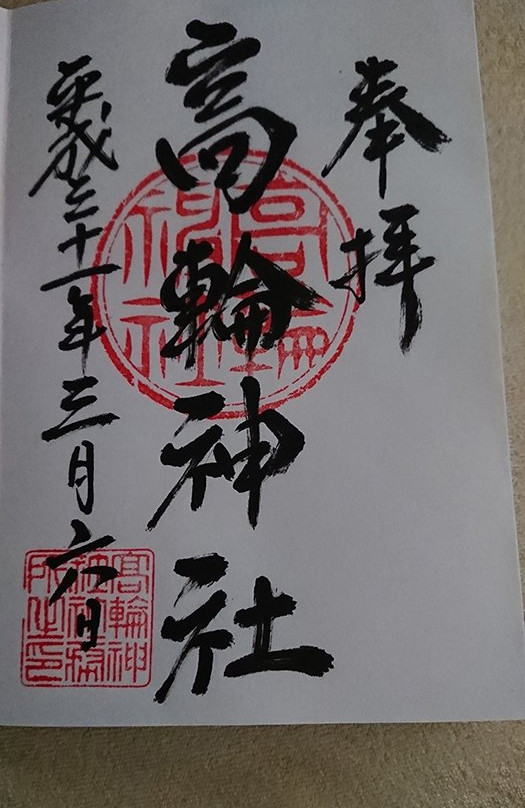 奉拝
高輪神社
平成三十一年三月六日
高輪
神社